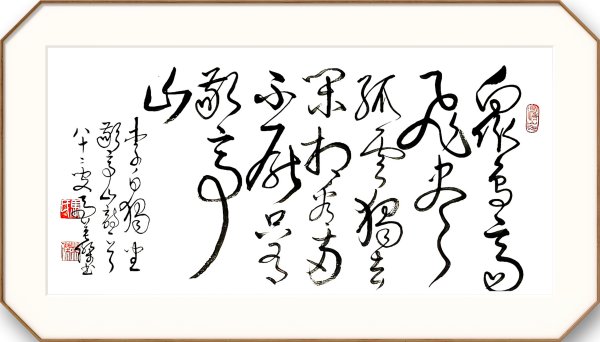 眾鳥高
飛盡
孤雲獨去
閑相看兩
不厭只有
敬亭
山
李白獨坐
敬亭山詩
八十二叟
書